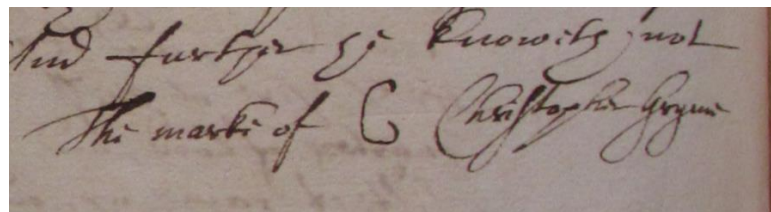 And further he knoweth not
The marke of C Christopher